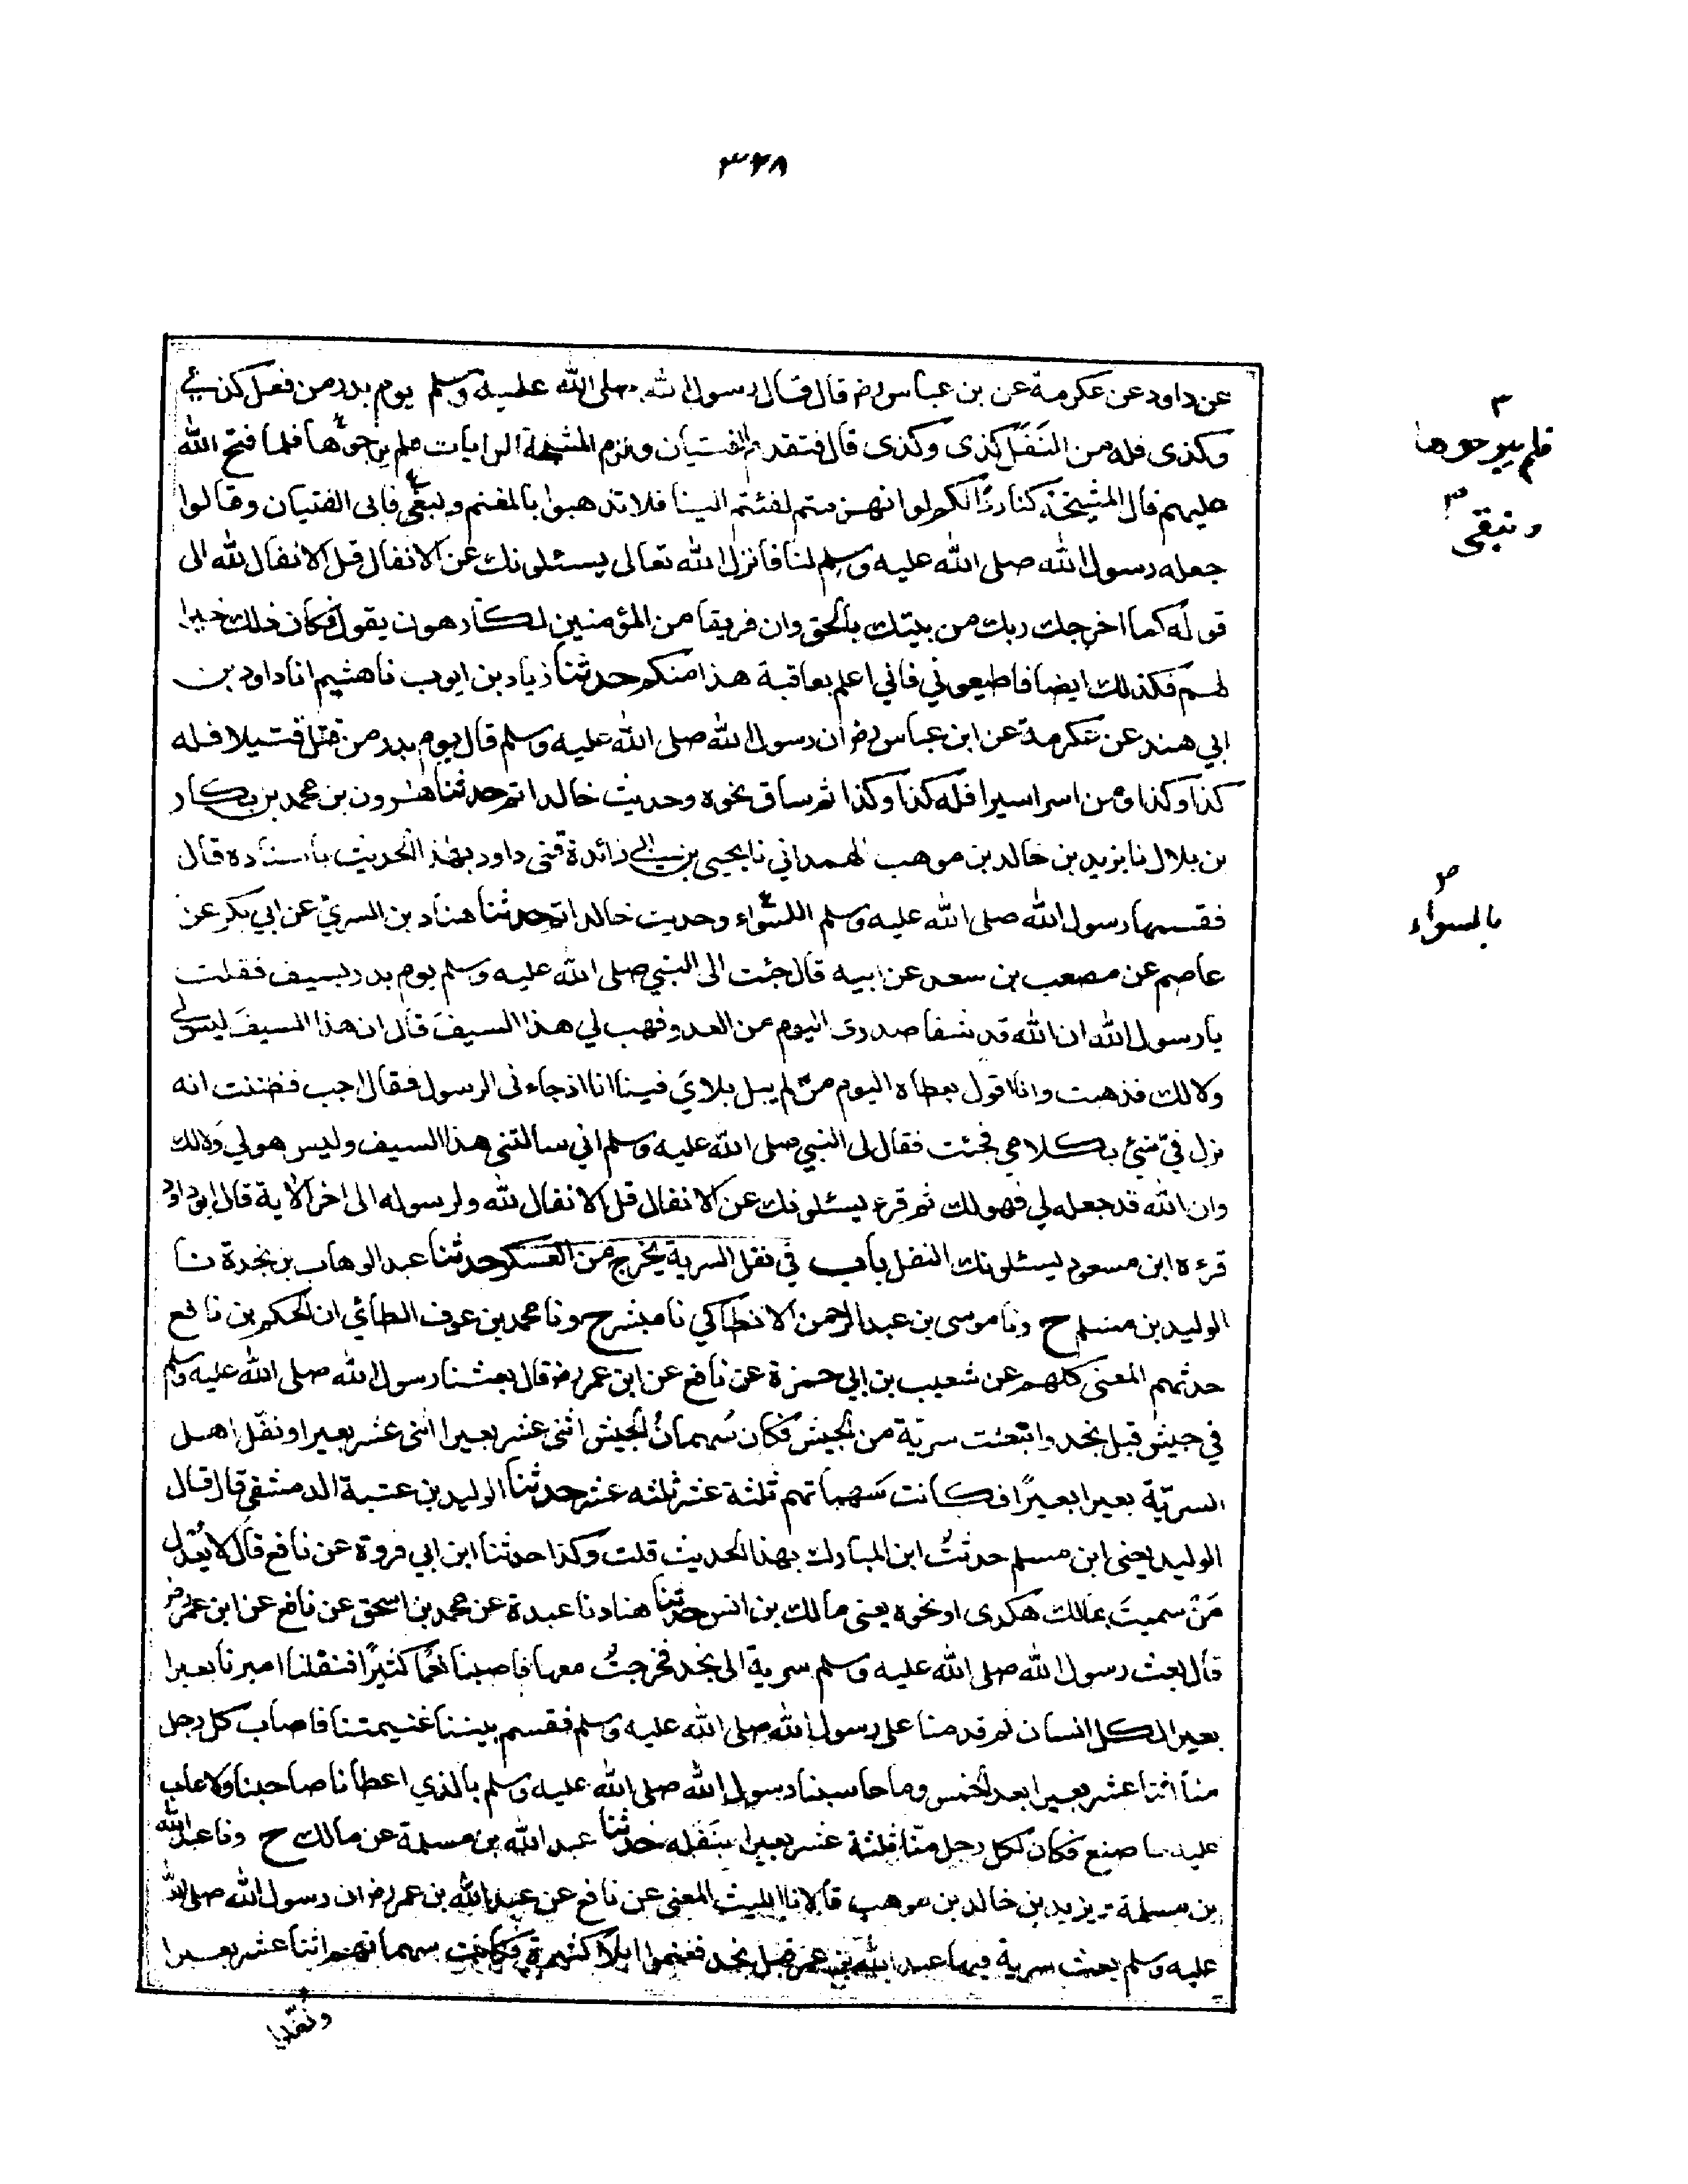 ٣٢٨
عن داود عن عكرمة عن بن عباس رض قال قال رسول الله صلى الله عليه وسلم يوم بدر من فعل كذى
وكذى فله من النَفَل كذى وكذى قال فتقدم الفتيان ولزم المشيخة الرايات فلم يرجوها فلما فتح الله
عليهم قال المشيخة كنا ردًا لكم لو انهزمتم لفئتم الينا فلا تذهبوا بالمغنم ونبقى فابى الفتيان وقالوا
جعله رسول الله صلى الله عليه وسلم لنا فانزل الله تعالى يسئلونك عن الانفال قل الانفال لله الى
قوله كما اخرجك ربك من بيتك بالحق وان فريقا من المؤمنين لكارهون يقول فكان ذلك خيرا
لهم فكذلك ايضا فاطيعوني فاني اعلم بعاقبة هذا منكم حدثنا زياد بن ايوب نا هشيم انا داود بن
ابي هند عن عكرمة عن ابن عباس رض ان رسول الله صلى الله عليه وسلم قال يوم بدر من قتل قتيلا فله
كذا وكذا ومن اسر اسيرا فله كذا وكذا ثم ساق نحوه وحديث خالد اتم حدثنا هٰرون بن محمد بن بكار
بن بلال نا يزيد بن خالد بن موهب الهمداني نا يحيى بن ابي زائدة قثنى داود بهذا الحديث باسناده قال
فقسمها رسول الله صلى الله عليه وسلم السواء وحديث خالد اتم حدثنا هناد بن السري عن ابي بكر عن
عاصم عن مصعب بن سعد عن ابيه قال جئت الى النبي صلى الله عليه وسلم يوم بدر بسيف فقلت
يا رسول الله ان الله قد شفا صدرى اليوم من العدو فهب لي هذا السيفَ قال ان هذا السيفَ ليس لي
ولا لك فذهبت وانا اقول يعطاه اليوم من لم يبل بلايَ فبينا انا اذ جاءنى الرسول فقال اجب فظننت انه
نزل فيّ شئ بكلامي فجئت فقال لى النبي صلى الله عليه وسلم انى سالتنى هذا السيف وليس هو لي وَلالك
وان الله قد جعله لي فهو لك ثم قرء يسئلونك عن الانفال قل الانفال لله ولرسوله الى اخر الاية قال ابو داود
قرءه ابن مسعود يسئلونك النفل باب في نفل السرية يخرج من العسكر حدثنا عبد الوهاب بن نجدة نا
الوليد بن مسلم ح ونا موسى بن عبد الرحمن الانطاكي نا مبشر ح ونا محمد بن عوف الطائي ان الحكم بن نافع
حدثهم المعنى كلهم عن شعيب بن ابي حمزة عن نافع عن ابن عمر رض قال بعثنا رسول الله صلى الله عليه وسلم
في جيش قبل نجد وابتعثت سريّة من الجيش فكان سُهمانُ الجيش اثنى عشر بعيرا اثنى عشر بعيرا ونفّل اهل
السريّة بعيرا بعيرًا فكانت سُهمانهم ثلثة عشر ثلثه عشر حدثنا الوليد بن عتبة الدمشقي قال قال
الوليد يعنى ابن مسلم حدثتُ ابن المبارك بهذا الحديث قلت وكذا حدثنا ابن ابي فروة عن نافع قال لا يعدل
مَن سميتَ بمالك هكذى او نحوه يعنى مالك بن انس حدثنا هناد نا عبدة عن محمد بن اسحق عن نافع عن ابن عمر رض
قال بعث رسول الله صلى الله عليه وسلم سرية الى نجد فخرجتُ معها فاصبنا نعمًا كثيرًا فنفلنا اميرنا بعيرا
بعيرا لكل انسان ثم قدمنا على رسول الله صلى الله عليه وسلم فقسم بيننا غنيمتنا فاصاب كل رجل
منا اثنا عشر بعيرا بعد الخمس وما حاسبنا رسول الله صلى الله عليه وسلم بالذي اعطانا صاحبنا ولا عاب
عليه ما صنع فكان لكل رجل منّا ثلثة عشر بعيرا بنَفَله حدثنا عبد الله بن مسلمة عن مالك ح ونا عبد الله
بن مسلمة ويزيد بن خالد بن موهب قالا نا الليث المعنى عن نافع عن عبد الله بن عمر رض ان رسول الله صلى الله
عليه وسلم بعث سرية فيها عبد الله بن عمر قبل نجد فغنموا ابلا كثيرة فكانت سهمانهم اثنا عشر بعيرا
ونُفّلوا
٣
فلم يبرحوها
٣
ونبقى
ص
بالسواء